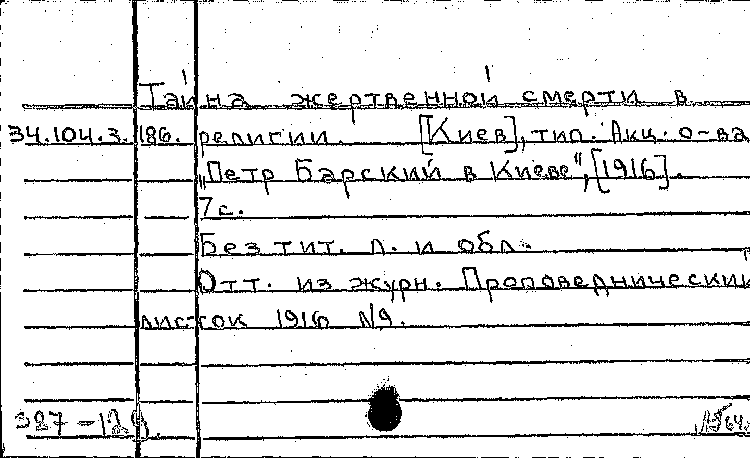 Тайна жертвенной смерти в
34.104.3.186. религии. [Киев], тип. Акц. о-ва
„Петр Барский в Киеве", [1916].
7с.
Без тит. л. и обл.
Отт. из журн. Проповеднический
листок 1916 №9.
327-129.